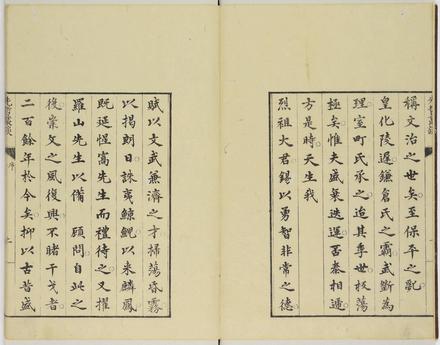 稱文治之世矣至保平之亂
皇化陵遲鎌倉氏之霸武斷為
理室町氏承之迨其季世板蕩
極矣惟夫盛衰迭運否泰相遞
方是時天生我
烈祖大君錫以勇智非常之德
賦以文武兼濟之才掃蕩昏霧
以揭朗日誅夷鯨鯢以來麟鳳
既延惺窩先生而禮待之又擢
羅山先生以備顧問自此之
後崇文之風復興不睹干戈者
二百餘年於今矣抑以古昔盛
先哲叢談
序
二